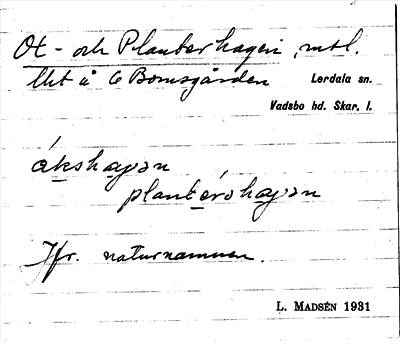 Ox- och Planterhagen, mtl.
1kt å 6 Bomsgården Lerdala sn.
Vadsbo hd. Skar. l.
ókshagan
plantérshagan
Jfr. naturnamnen.
L. MADSÉN 1931